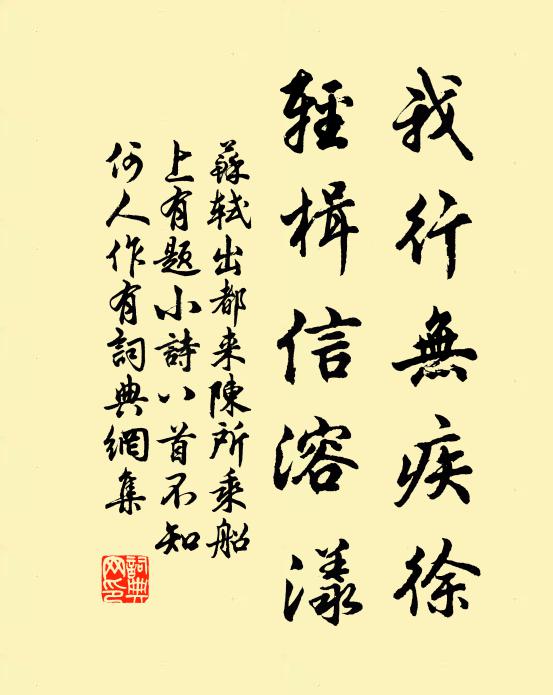 我行無疾徐
輕楫信溶漾
蘇軾出都来陳所乘船
上有题小詩八首不知
何人作有詞典網集
詞典
网印